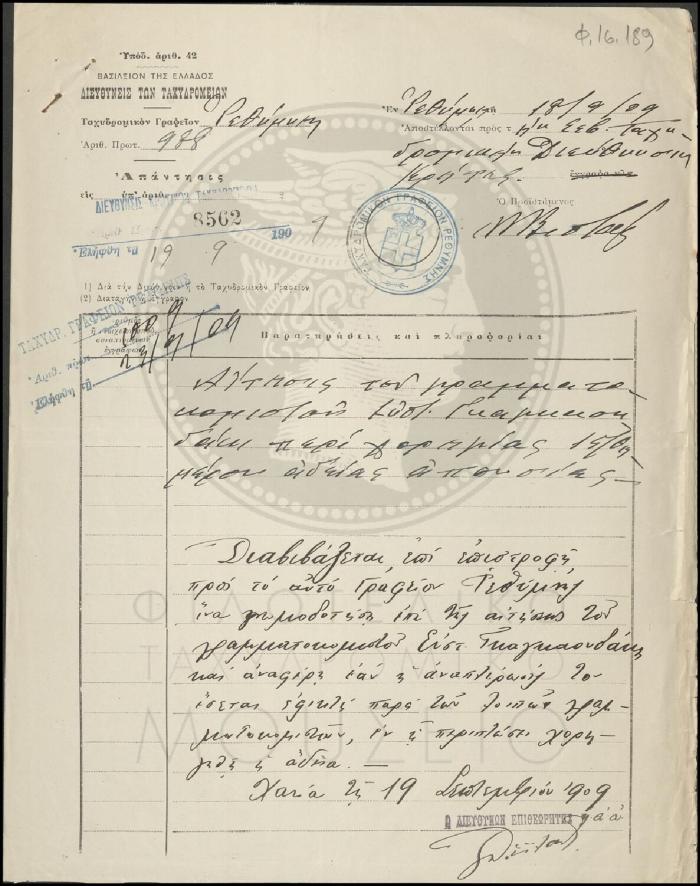 Φ.16.189
Ὑπόδ. ἀριθ. 42
ΒΑΣΙΛΕΙΟΝ ΤΗΣ ΕΛΛΑΔΟΣ
ΔΙΕΥΘΥΝΣΙΣ ΤΩΝ ΤΑΧΥΔΡΟΜΕΙΩΝ
Ταχυδρομικὸν Γραφεῖον Ρεθύμνης
Ἀριθ. Πρωτ. 988
Ἐν Ρεθύμνῃ 18/9/09
Ἀποστέλλονται πρὸς τὴν Σεβ. Ταχυ
δρομικὴν Διεύθυνσιν
Κρήτης.
ἔγγραφα κλπ.
Ὁ Προϊστάμενος
Ἀπάντησις
εἰς ὑπ' ἀριθ.
8562
Ἐλήφθη τῇ 19 9 1909
ΤΑΧΥΔΡΟΜΙΚΟΝ ΓΡΑΦΕΙΟΝ ΡΕΘΥΜΝΗΣ
1) Διὰ τὴν Διεύθυνσιν ἢ τὸ Ταχυδρομικὸν Γραφεῖον
(2) Διαταγὴ ἢ ἔγγραφον
ΤΑΧΥΔΡ. ΓΡΑΦΕΙΟΝ ΡΕΘΥΜΝΗΣ
Ἀριθ. πρωτ.
Ἐλήφθη τῇ
Παρατηρήσεις καὶ πληροφορίαι
Αἴτησις τοῦ γραμματο
κομιστοῦ Εὐστ. Γκαγκαου
δάκη περὶ χορηγίας 15/θη
μέρου ἀδείας ἀπουσίας
Διαβιβάζεται, ἐπὶ ἐπιστροφῇ,
πρὸς τὸ αὐτὸ Γραφεῖον Ρεθύμνης
ἵνα γνωμοδοτήσῃ ἐπὶ τῆς αἰτήσεως τοῦ
γραμματοκομιστοῦ Εὐστ. Γκαγκαουδάκη
καὶ ἀναφέρῃ ἐὰν ἡ ἀναπλήρωσίς του
ἔσεται ἐφικτὴ παρὰ τῶν λοιπῶν γραμ
ματοκομιστῶν, ἐν ᾗ περιπτώσει χορη
γηθῇ ἡ ἄδεια. —
Χανιὰ τῇ 19 Σεπτεμβρίου 1909
Ο ΔΙΕΥΘΥΝΩΝ ΕΠΙΘΕΩΡΗΤΗΣ
ΦΙΛΟΤΕΛΙΚΟ
ΤΑΧΥΔΡΟΜΙΚΟ
ΜΟΥΣΕΙΟ